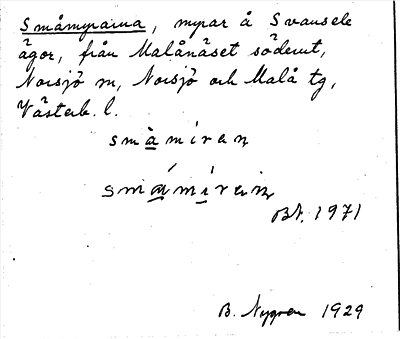 Småmyrarna, myrar å Svansele
ägor, från Malånäset söderut,
Norsjö sn, Norsjö och Malå tg,
Västerb. l.
småmiran
småmiran
BN. 1971
B. Nygren 1929